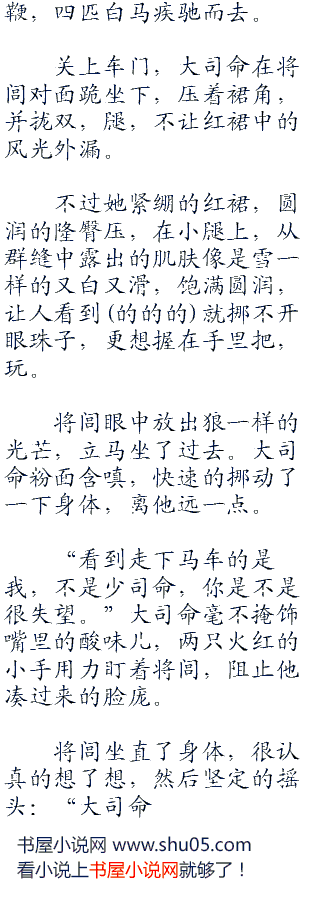 鞭，四匹白马疾驰而去。
关上车门，大司命在将
闾对面跪坐下，压着裙角，
并拢双，腿，不让红裙中的
风光外漏。
不过她紧绷的红裙，圆
润的隆臀压，在小腿上，从
群缝中露出的肌肤像是雪一
样的又白又滑，饱满圆润，
让人看到(的的的)就挪不开
眼珠子，更想握在手里把，
玩。
将闾眼中放出狼一样的
光芒，立马坐了过去。大司
命粉面含嗔，快速的挪动了
一下身体，离他远一点。
“看到走下马车的是
我，不是少司命，你是不是
很失望。”大司命毫不掩饰
嘴里的酸味儿，两只火红的
小手用力盯着将闾，阻止他
凑过来的脸庞。
将闾坐直了身体，很认
真的想了想，然后坚定的摇
头：“大司命
书屋小说网 www.shu05.com
看小说上书屋小说网就够了！